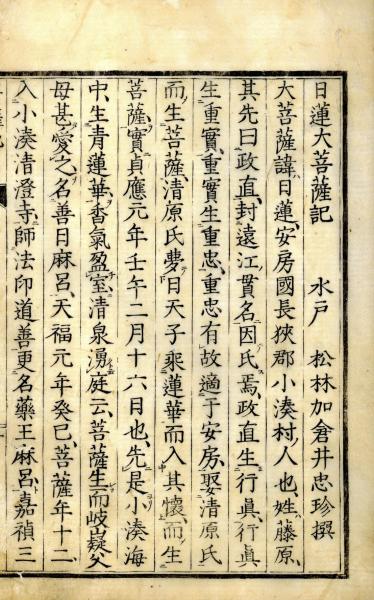 日蓮大菩薩記　水戶　松林加倉井忠珍撰
大菩薩諱日蓮、安房國長狹郡小湊村人也、姓藤原、
其先曰政直、封遠江貫名、因氏焉、政直生行眞、行眞
生重實、重實生重忠、重忠有故適于安房、娶清原氏
而生菩薩、清原氏夢日天子乘蓮華而入其懷、而生
菩薩、實貞應元年壬午二月十六日也、先是小湊海
中、生青蓮華、香氣盈室、清泉湧庭云、菩薩生而岐嶷、父
母甚愛之、名善日麻呂、天福元年癸巳、菩薩年十二、
入小湊清澄寺、師法印道善、更名藥王麻呂、嘉禎三